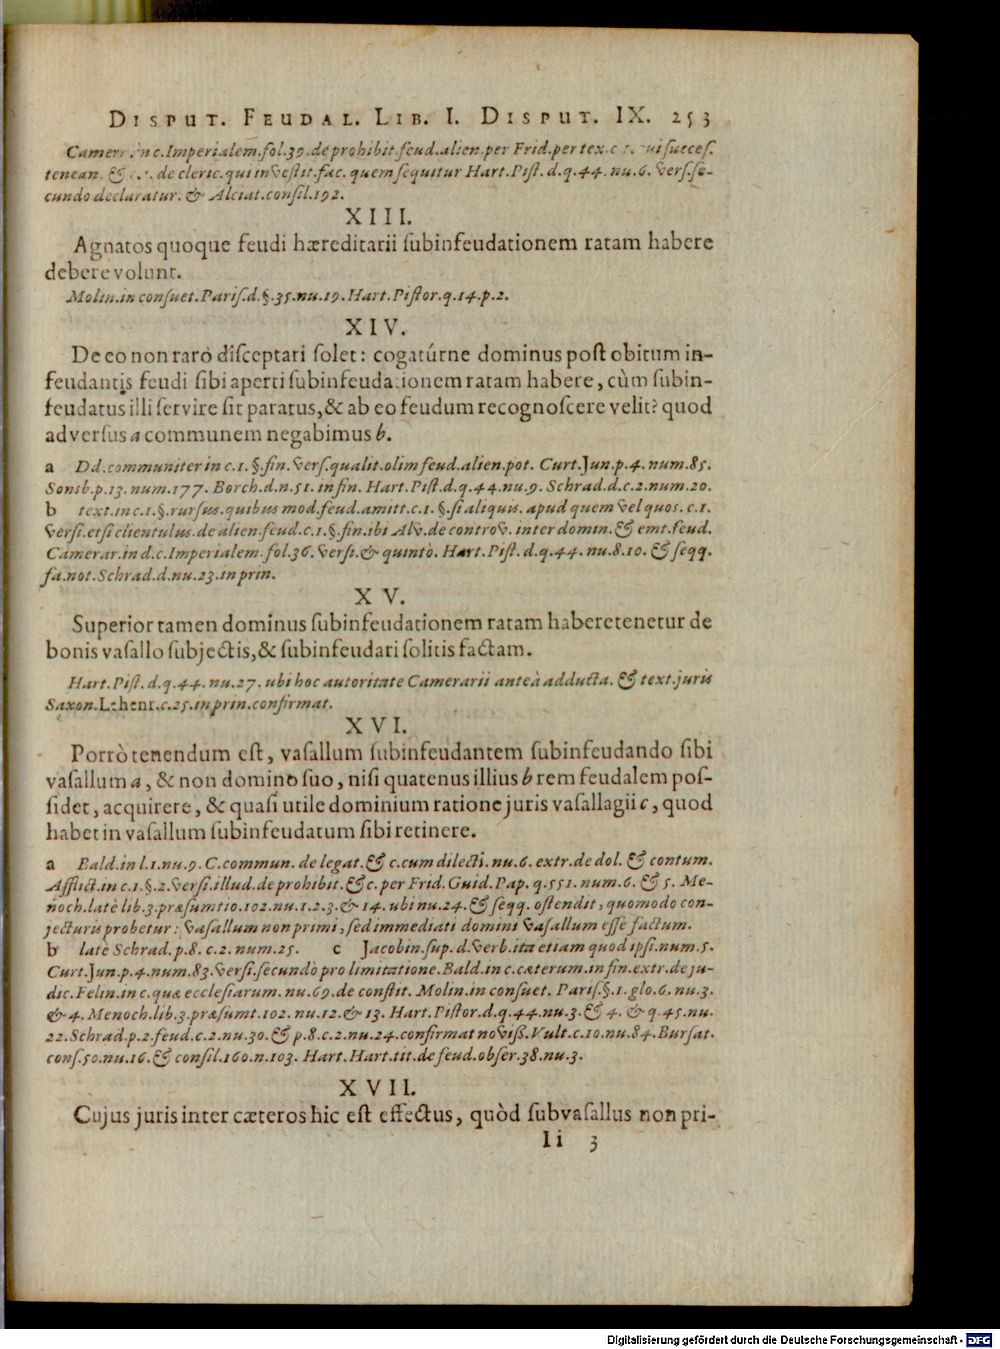 DISPUT. FEUDAL. LIB. I. DISPUT. IX. 253
in c. Imperialem. fol. 39. de prohibit. feud. alien. per Frid. per tex. c succes.
tenean. & de cleric. qui investit. fac. quem sequitur Hart. Pist. d. q. 44. nu. 6. vers. se-
cundo declaratur. & Alciat. consil. 192.
XIII.
Agnatos quoque feudi hæreditarii subinfeudationem ratam habere
debere volunt.
Molin. in consuet. Paris. d. §. 35. nu. 19. Hart. Pistor. q. 14. p. 2.
XIV.
De eo non rarò disceptari solet: cogatúrne dominus post obitum in-
feudantis feudi sibi aperti subinfeudationem ratam habere, cùm subin-
feudatus illi servire sit paratus, & ab eo feudum recognoscere velit? quod
adversus a communem negabimus b.
a Dd. communiter in c. 1. §. fin. vers. qualit. olim feud. alien. pot. Curt. Jun. p. 4. num. 85.
Sonsb. p. 13. num. 177. Borch. d. n. 51. in fin. Hart. Pist. d. q. 44. nu. 9. Schrad. d. c. 2. num. 20.
b text. in c. 1. §. rursus. quibus mod. feud. amitt. c. 1. §. si aliquis. apud quem vel quos. c. 1.
versi. etsi clientulus. de alien. feud. c. 1. §. fin. ibi Alv. de controv. inter domin. & emt. feud.
Camerar. in d. c. Imperialem. fol. 36. versi. & quintò. Hart. Pist. d. q. 44. nu. 8. 10. & seqq.
fa. not. Schrad. d. nu. 23. in prin.
XV.
Superior tamen dominus subinfeudationem ratam habere tenetur de
bonis vasallo subjectis, & subinfeudari solitis factam.
Hart. Pist. d. q. 44. nu. 27. ubi hoc autoritate Camerarii anteà adducta. & text. juris
Saxon. Lehenr. c. 25. in prin. confirmat.
XVI.
Porrò tenendum est, vasallum subinfeudantem subinfeudando sibi
vasallum a, & non domino suo, nisi quatenus illius b rem feudalem pos-
sidet, acquirere, & quasi utile dominium ratione juris vasallagii c, quod
habet in vasallum subinfeudatum sibi retinere.
a Bald. in l. 1. nu. 9. C. commun. de legat. & c. cum dilecti. nu. 6. extr. de dol. & contum.
Afflict. in c. 1. §. 2. versi. illud. de prohibit. & c. per Frid. Guid. Pap. q. 551. num. 6. & 5. Me-
noch. latè lib. 3. præsumtio. 102. nu. 1. 2. 3. & 14. ubi nu. 24. & seqq. ostendit, quomodo con-
jecturis probetur: vasallum non primi, sed immediati domini vasallum esse factum.
b latè Schrad. p. 8. c. 2. num. 25. c Jacobin. sup. d. verb. ita etiam quod ipsi. num. 5.
Curt. Jun. p. 4. num. 83. versi. secundò pro limitatione. Bald. in c. cæterum. in fin. extr. de ju-
dic. Felin. in c. quæ ecclesiarum. nu. 69. de constit. Molin. in consuet. Paris. §. 1. glo. 6. nu. 3.
& 4. Menoch. lib. 3. præsumt. 102. nu. 12. & 13. Hart. Pistor. d. q. 44. nu. 3. & 4. & q. 45. nu.
22. Schrad. p. 2. feud. c. 2. nu. 30. & p. 8. c. 2. nu. 24. confirmat noviss. Vult. c. 10. nu. 84. Bursat.
cons. 50. nu. 16. & consil. 160. n. 103. Hart. Hart. tit. de feud. obser. 38. nu. 3.
XVII.
Cujus juris inter cæteros hic est effectus, quòd subvasallus non pri-
Ii 3
Digitalisierung gefördert durch die Deutsche Forschungsgemeinschaft - DFG